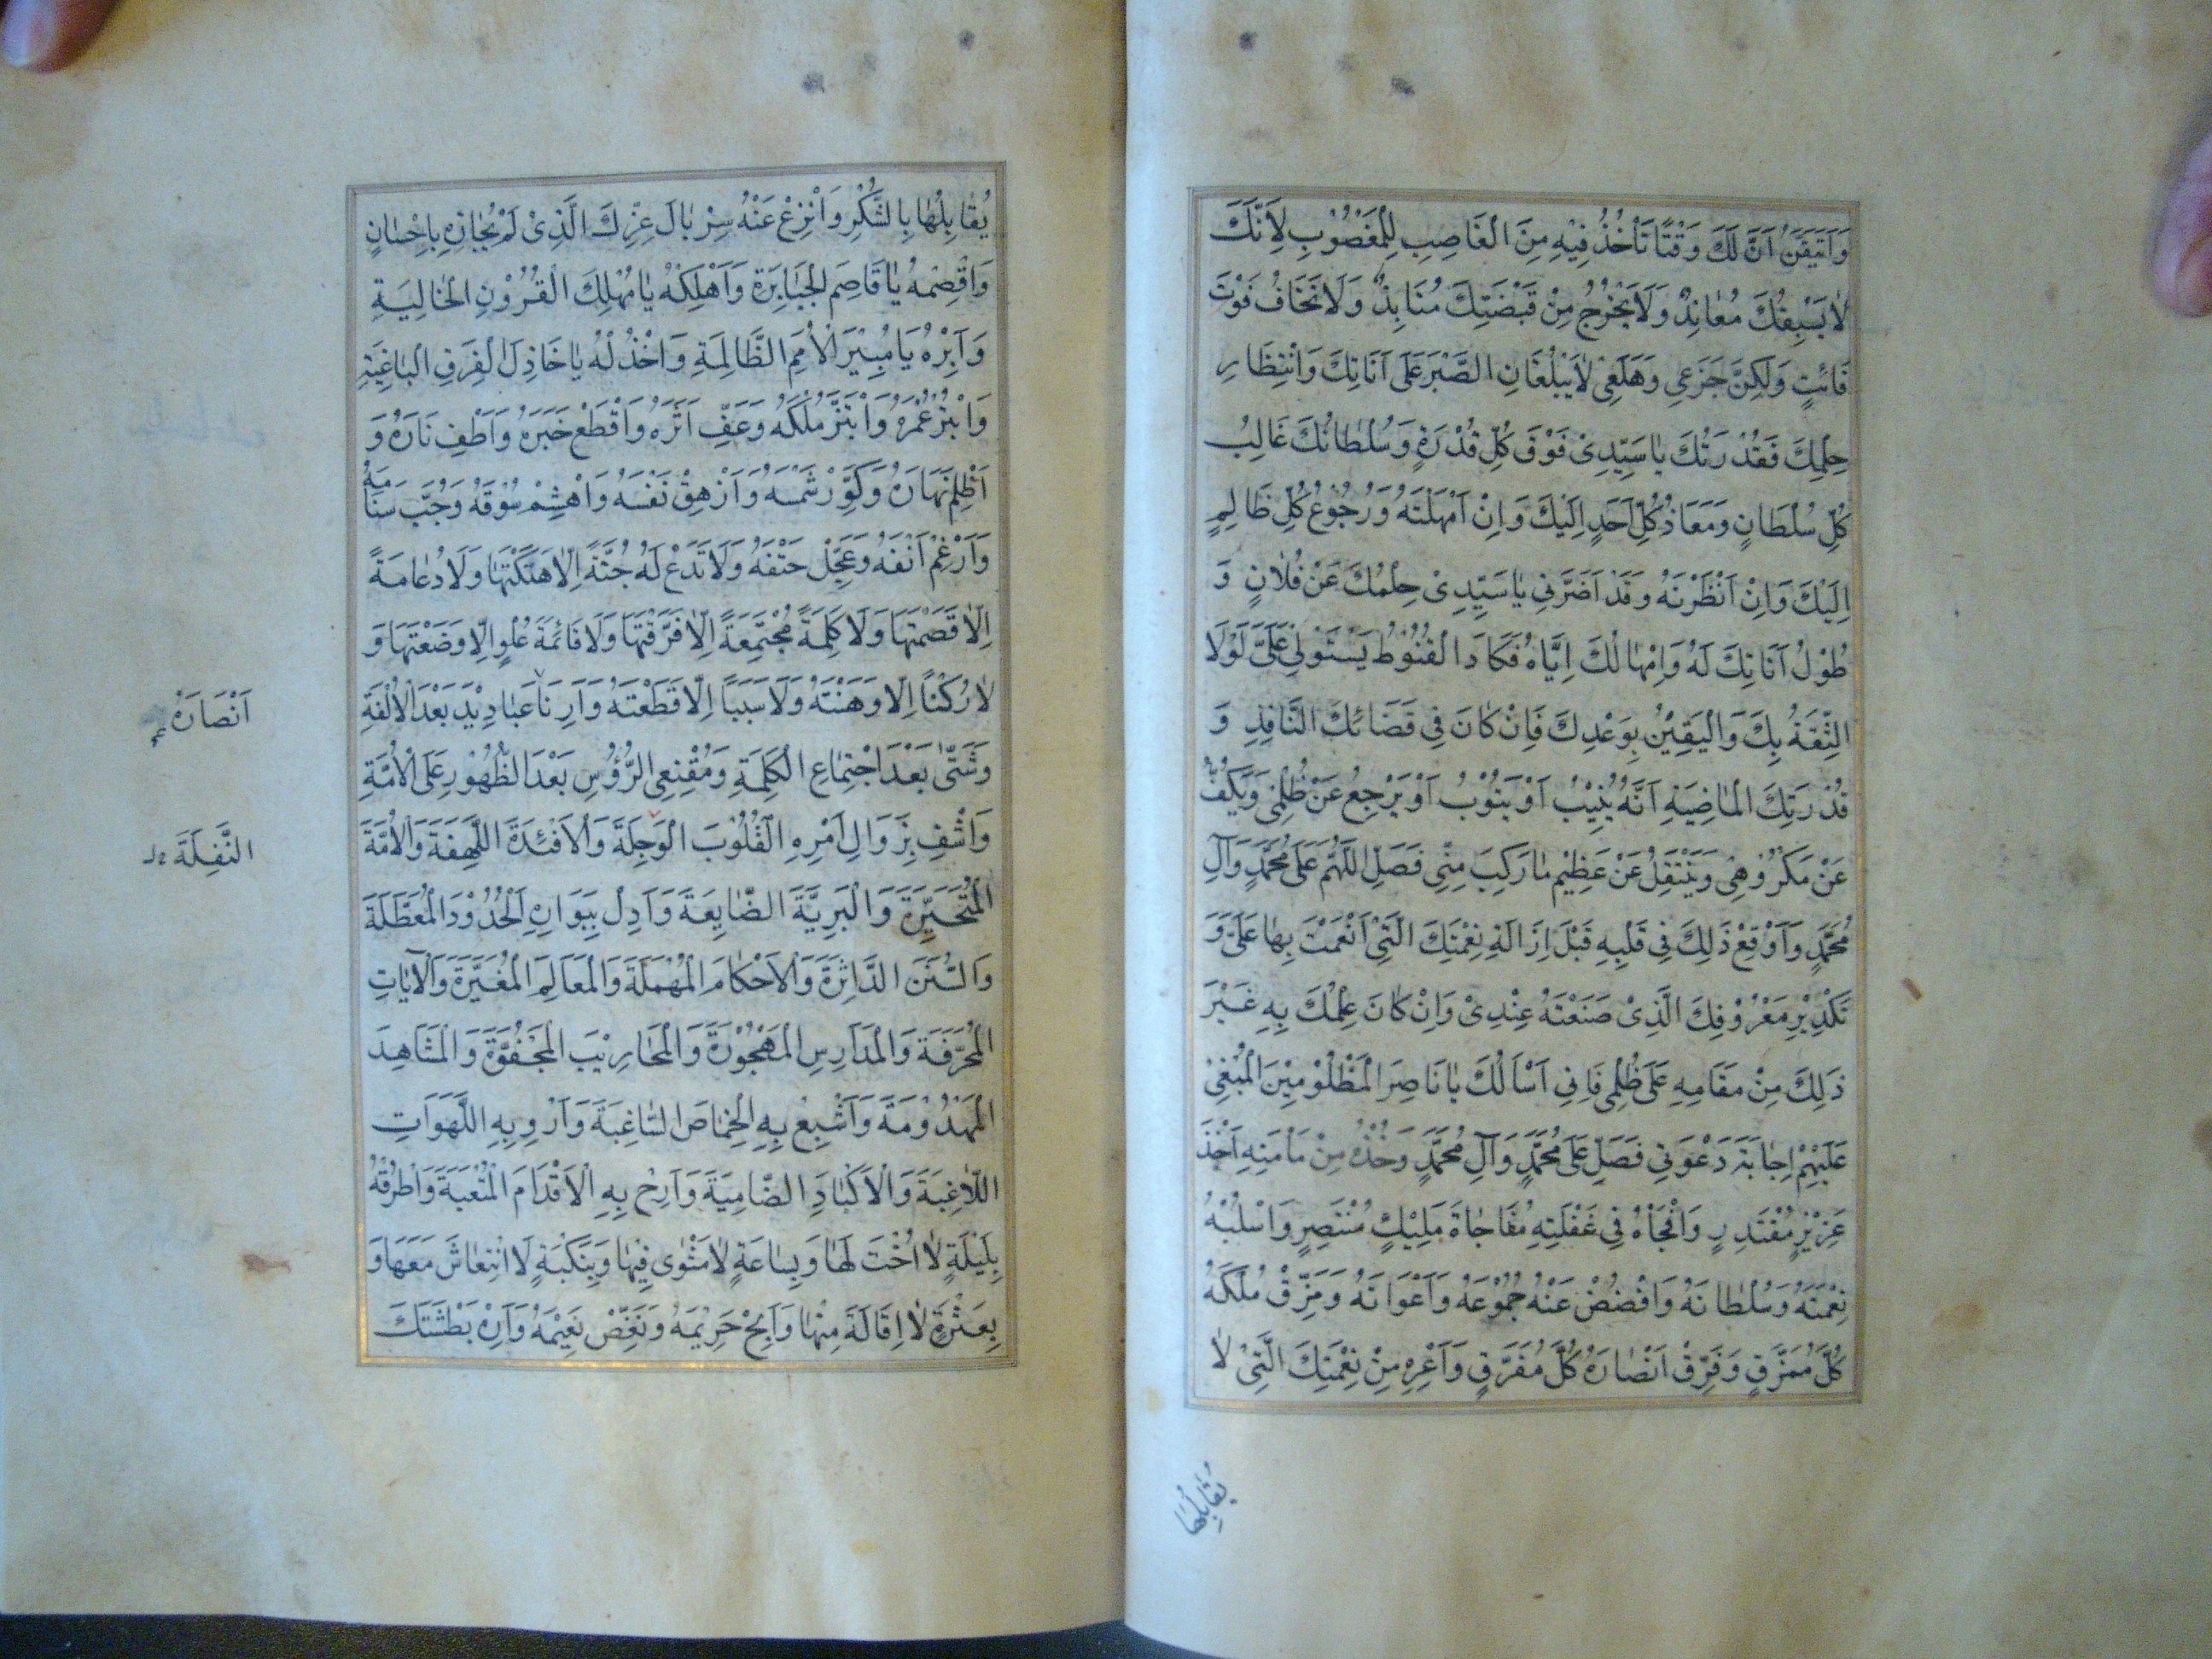 وَاَتَيَقَّنُ اَنَّ لَكَ وَقْتًا تَأْخُذُ فِيْهِ مِنَ الْغَاصِبِ لِلْمَغْصُوْبِ لِاَنَّكَ
لٰا يَسْبِقُكَ مُعٰانِدٌ وَلَا يَخْرُجُ مِنْ قَبْضَتِكَ مُنَابِذٌ وَلَا تَخَافُ فَوْتَ
فَائِتٍ وَلٰكِنَّ جَزَعِي وَهَلَعِيْ لٰا يَبْلُغَانِ الصَّبْرَ عَلَى اَنَاتِكَ وَانْتِظَارِ
حِلْمِكَ فَقُدْرَتُكَ يٰا سَيِّدِىْ فَوْقَ كُلِّ قُدْرَةٍ وَسُلْطٰانُكَ غَالِبُ
كُلِّ سُلْطَانٍ وَمَعَادُ كُلِّ اَحَدٍ اِلَيْكَ وَاِنْ اَمْهَلْتَهُ وَرُجُوْعُ كُلِّ ظَالِمٍ
اِلَيْكَ وَاِنْ اَنْظَرْتَهُ وَقَدْ اَضَرَّنِي يٰا سَيِّدِىْ حِلْمُكَ عَنْ فُلٰانٍ وَ
طُوْلُ اَنَاتِكَ لَهُ وَاِمْهٰالُكَ اِيَّاهُ فَكَادَ الْقُنُوْطُ يَسْتَوْلِيْ عَلَىَّ لَوْلَا
الثِّقَةُ بِكَ وَالْيَقِيْنُ بِوَعْدِكَ فَاِنْ كٰانَ فِي قَضَائِكَ النَّافِذِ وَ
قُدْرَتِكَ الْمٰاضِيَةِ اَنَّهُ يُنِيْبُ اَوْ يَتُوْبُ اَوْ يَرْجِعُ عَنْ ظُلْمِيْ وَيَكُفُّ
عَنْ مَكْرُوْهِيْ وَيَنْتَقِلُ عَنْ عَظِيْمِ مٰا رَكِبَ مِنِّي فَصَلِّ اللَّهُمَّ عَلَى مُحَمَّدٍ وَآلِ
مُحَمَّدٍ وَاَوْقِعْ ذَلِكَ فِي قَلْبِهِ قَبْلَ اِزَالَةِ نِعْمَتِكَ الَّتِيْ اَنْعَمْتَ بِهٰا عَلَىَّ وَ
تَكْدِيْرِ مَعْرُوْفِكَ الَّذِىْ صَنَعْتَهُ عِنْدِىْ وَاِنْ كٰانَ عِلْمُكَ بِهِ غَيْرَ
ذَلِكَ مِنْ مَقَامِهِ عَلَى ظُلْمِي فَاِنِي اَسْاَلُكَ يٰا نَاصِرَ الْمَظْلُوْمِيْنَ الْمَبْغِيْ
عَلَيْهِمْ اِجٰابَةَ دَعْوَتِي فَصَلِّ عَلَى مُحَمَّدٍ وَآلِ مُحَمَّدٍ وَخُذْهُ مِنْ مَأْمَنِهِ اَخْذَ
عَزِيْزٍ مُقْتَدِرٍ وَافْجَأْهُ فِي غَفْلَتِهِ مُفَاجٰاةَ مَلِيْكٍ مُنْتَصِرٍ وَاسْلُبْهُ
نِعْمَتَهُ وَسُلْطٰانَهُ وَافْضُضْ عَنْهُ جُمُوْعَهُ وَاَعْوَانَهُ وَمَزِّقْ مُلْكَهُ
كُلَّ مُمَزَّقٍ وَفَرِّقْ اَنْصٰارَهُ كُلَّ مُفَرَّقٍ وَاَعْرِهِ مِنْ نِعْمَتِكَ الَّتِيْ لٰا
يُقَابِلُهَا
يُقٰابِلُهٰا بِالشُّكْرِ وَانْزِعْ عَنْهُ سِرْبٰالَ عِزِّكَ الَّذِىْ لَمْ يُجٰازِهِ بِاِحْسٰانٍ
وَاقْصِمْهُ يٰا قَاصِمَ الْجَبَابِرَةِ وَاَهْلِكْهُ يٰا مُهْلِكَ الْقُرُوْنِ الْخٰالِيَةِ
وَاَبِرْهُ يَا مُبِيْرَ الْاُمَمِ الظَّالِمَةِ وَاخْذُلْهُ يٰا خَاذِلَ الْفِرَقِ الْبٰاغِيَةِ
وَابْتُرْ عُمْرَهُ وَابْتَزَّ مُلْكَهُ وَعَفِّ اَثَرَهُ وَاقْطَعْ خَبَرَهُ وَاَطْفِ نَارَهُ وَ
اَظْلِمْ نَهَارَهُ وَكَوِّرْ شَمْسَهُ وَاَزْهِقْ نَفْسَهُ وَاهْشِمْ سُوْقَهُ وَجُبَّ سَنَامَهُ
وَاَرْغِمْ اَنْفَهُ وَعَجِّلْ حَتْفَهُ وَلَا تَدَعْ لَهُ جُنَّةً اِلّٰا هَتَكْتَهٰا وَلَا دُعٰامَةً
اِلّٰا قَصَمْتَهٰا وَلَا كَلِمَةً مُجْتَمِعَةً اِلّٰا فَرَّقْتَهَا وَلَا قَائِمَةَ عُلُوٍّ اِلّٰا وَضَعْتَهَا وَ
لٰا رُكْنًا اِلّٰا وَهَنْتَهُ وَلَا سَبَبًا اِلّٰا قَطَعْتَهُ وَاَرِنَا عَبٰادِيْدَ بَعْدَ الْاُلْفَةِ
وَشَتّٰى بَعْدَ اجْتِمٰاعِ الْكَلِمَةِ وَمُقْنِعِي الرُّؤُسِ بَعْدَ الظُّهُوْرِ عَلَى الْاُمَّةِ
وَاشْفِ بِزَوَالِ اَمْرِهِ الْقُلُوْبَ الْوَجِلَةَ وَالْاَفْئِدَةَ اللَّهِفَةَ وَالْاُمَّةَ
الْمُتَحَيِّرَةَ وَالْبَرِيَّةَ الضّٰايِعَةَ وَاَدِلْ بِبَوَارِهِ الْحُدُوْدَ الْمُعَطَّلَةَ
وَالسُّنَنَ الدَّاثِرَةَ وَالْاَحْكٰامَ الْمُهْمَلَةَ وَالْمَعَالِمَ الْمُغَيَّرَةَ وَالْاٰيٰاتِ
الْمُحَرَّفَةَ وَالْمَدَارِسَ الْمَهْجُوْرَةَ وَالْمَحٰارِيْبَ الْمَجْفُوَّةَ وَالْمَشَاهِدَ
الْمَهْدُوْمَةَ وَاَشْبِعْ بِهِ الْخِمٰاصَ السّٰاغِبَةَ وَاَرْوِ بِهِ اللَّهَوَاتِ
اللّٰاغِبَةَ وَالْاَكْبٰادَ الضّٰامِيَةَ وَاَرِحْ بِهِ الْاَقْدَامَ الْمُتْعَبَةَ وَاطْرُقْهُ
بِلَيْلَةٍ لٰا اُخْتَ لَهٰا وَبِسٰاعَةٍ لٰا مَثْوٰى فِيْهٰا وَبِنَكْبَةٍ لَا انْتِعٰاشَ مَعَهَا وَ
بِعَثْرَةٍ لٰا اِقَالَةَ مِنْهٰا وَاَبِحْ حَرِيْمَهُ وَنَغِّصْ نَعِيْمَهُ وَاَرِهْ بَطْشَتَكَ
اَنْصَارَهُ
النَّغِلَةَ